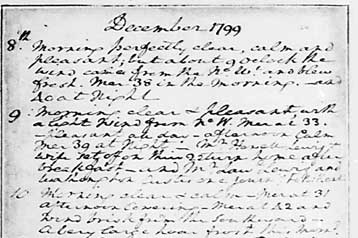 December 1799
8th Morning perfectly clear, calm and
pleasant, but about 9 oclock the
wind came from the No. Wt. and blew
fresh. Mer. 38 in the Morning. and
40 at Night
9 Morning clear & pleasant with
a light Wind from No. W. Mer. at 33.
Pleasant all day—afternoon Calm
Mer 39 at Night— Mr. Howell Lewis &
wife set off on their return home after
breakfast—and Mr.
Washington
10 Morning clear & calm—Mer at 31
afternoon lowering—Mer at 42 and
wind brisk from the Southward.
A very large hoar frost this Morn.